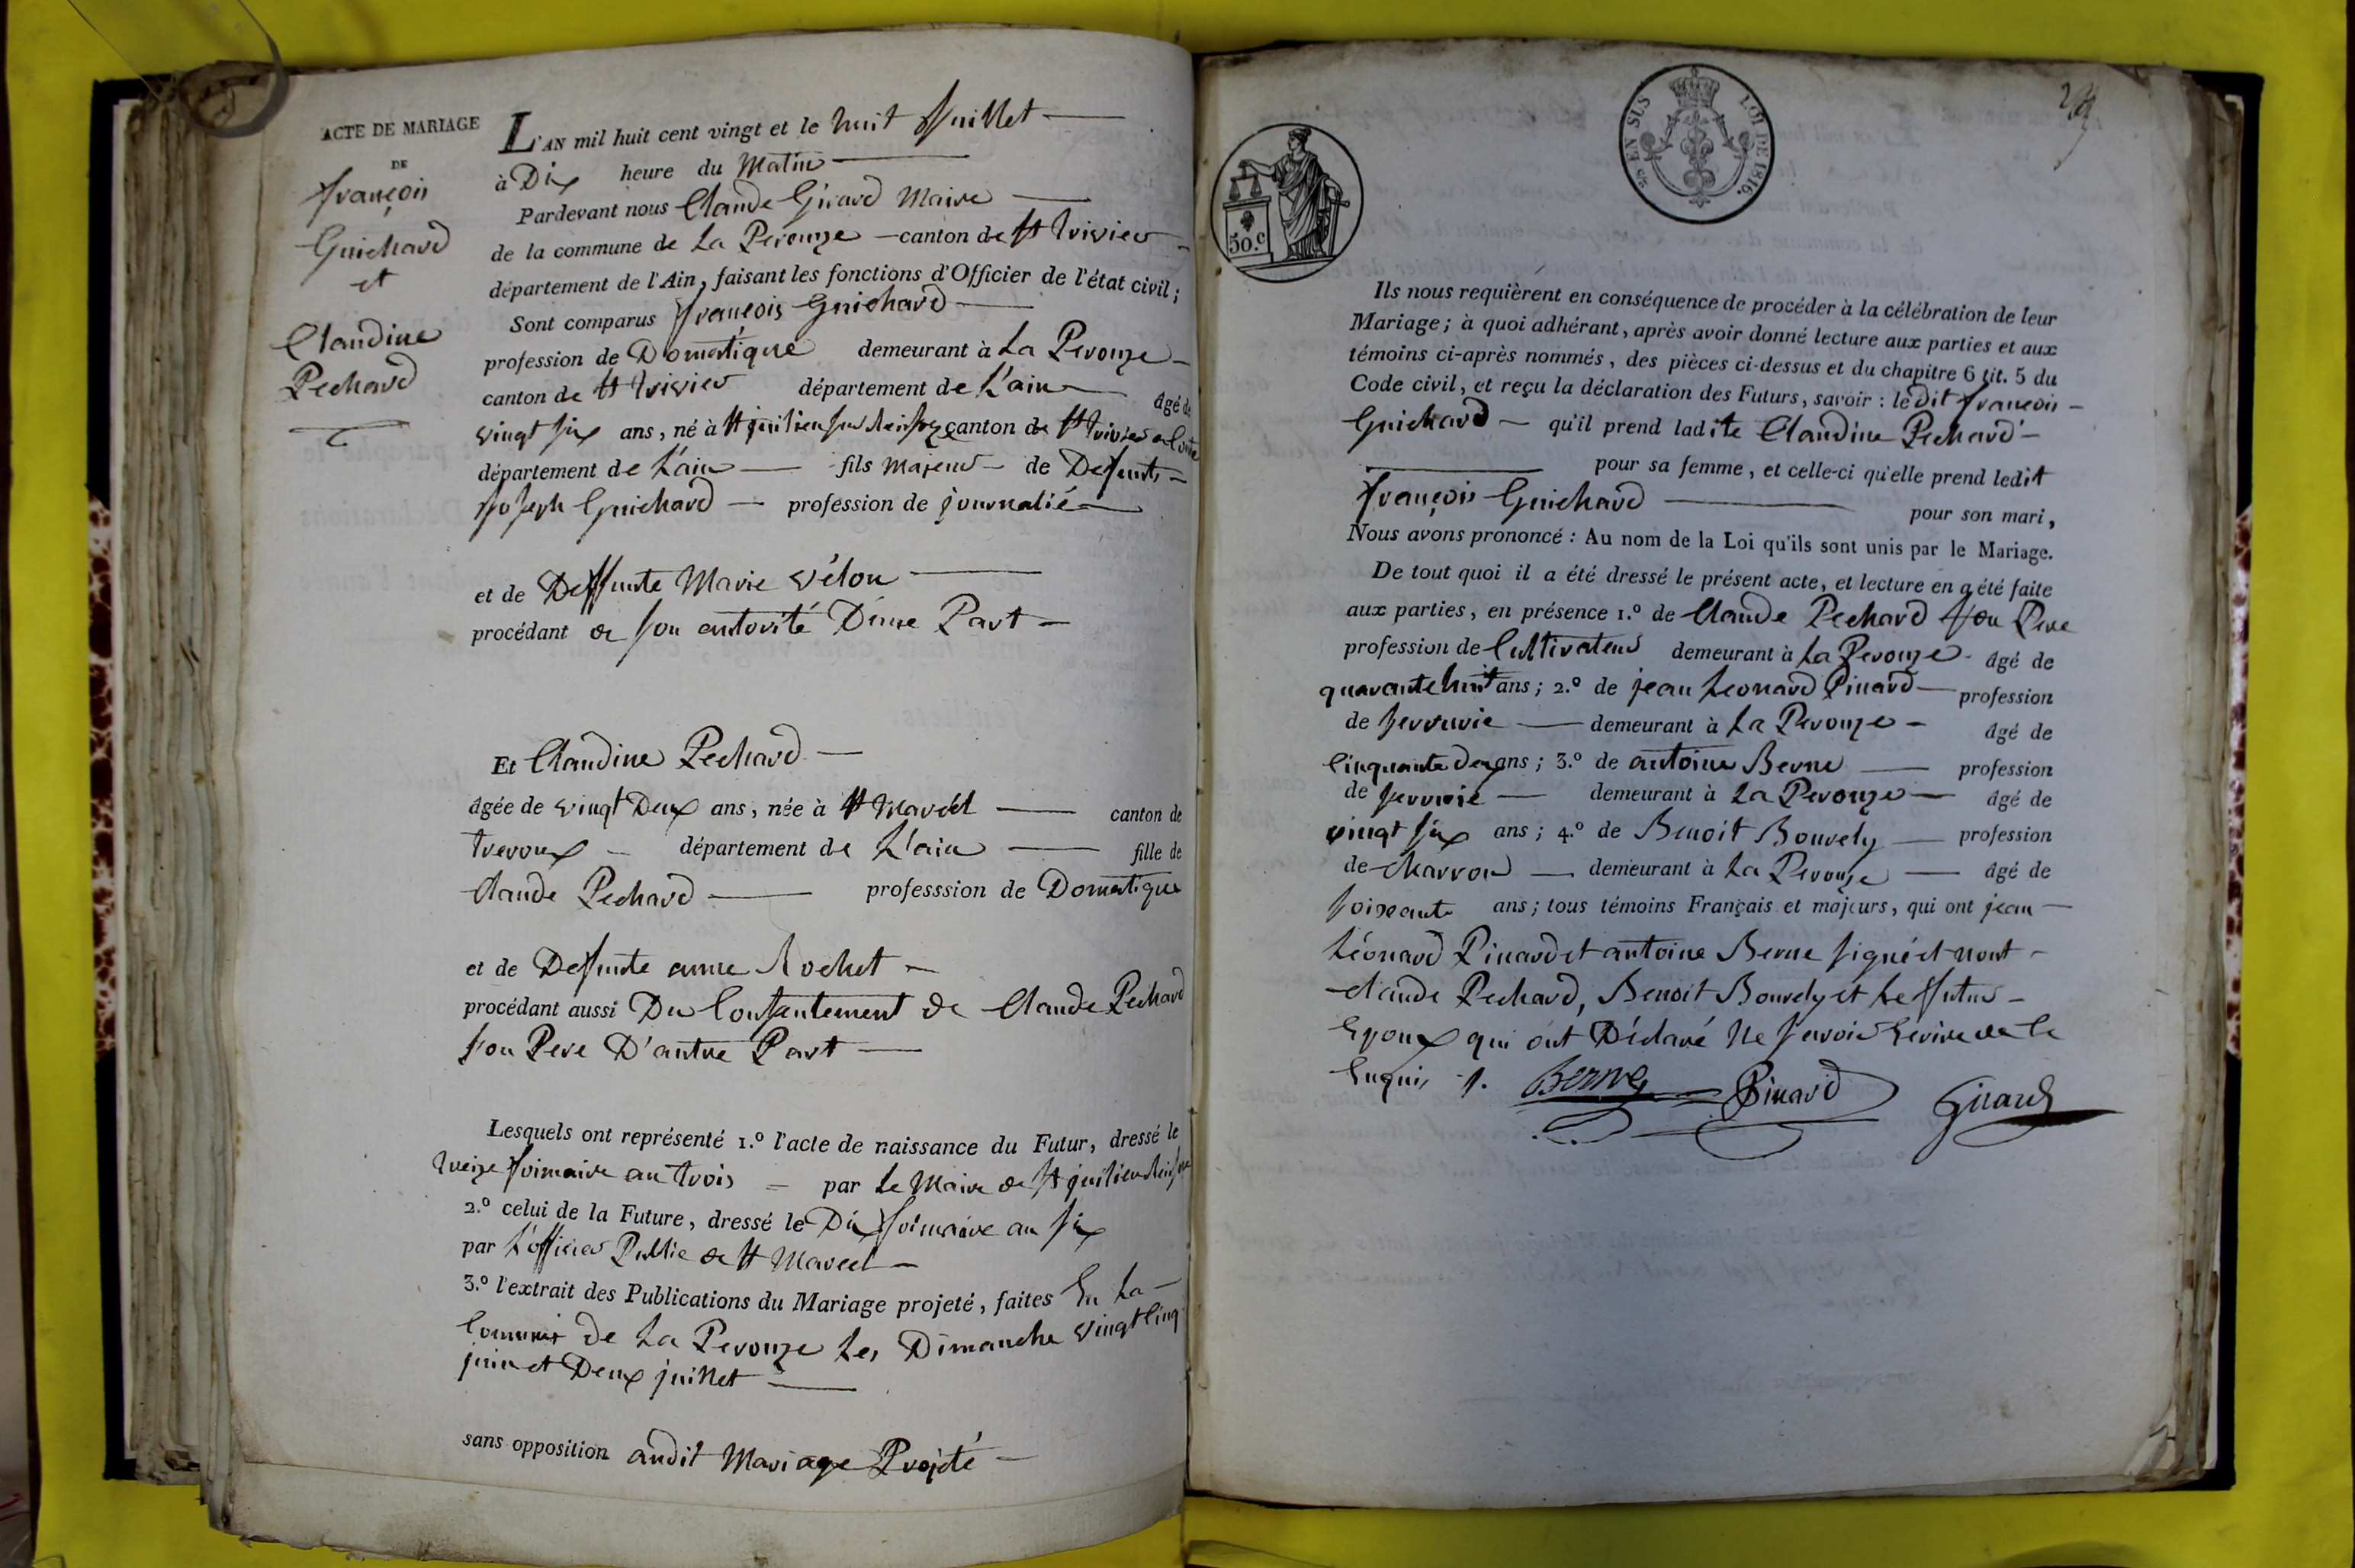 ACTE DE MARIAGE
DE
françois
Guichard
et
Claudine
Pechard
L'AN mil huit cent vingt et le huit Juillet
à Dix heure du Matin
Pardevant nous Claude Girard Maire
de la commune de La Perouze canton de St trivier
département de l'Ain, faisant les fonctions d'Officier de l'état civil;
Sont comparus françois Guichard
profession de Domatique demeurant à La Perouze
canton de St trivier département de L'ain âgé de
vingt six ans, né à St canton de St trivier
département de L'ain fils majeur de Defunts
Joseph Guichard profession de journalié
et de Deffunte Marie vélon
procédant de son autorité D'une Part
Et Claudine Pechard
âgée de vingt Deux ans, née à St Marcel canton de
trevoux département de L'ain fille de
Claude Pechard professsion de Domatique
et de Defunte anne Rochet
procédant aussi Du Consentement de Claude Pechard
son Pere D'autre Part
Lesquels ont représenté 1.º l'acte de naissance du Futur, dressé le
treize frimaire an trois par Le Maire de St
2.º celui de la Future, dressé le Dix frimaire an six
par L'officier Public de St Marcel
3.º l'extrait des Publications du Mariage projeté, faites En La
Commune de La Perouze Les Dimanche vingt Cinq
juin et Deux juillet
sans opposition audit Mariage Projeté
50.c
EN SUS
LOI DE 1816.
Ils nous requièrent en conséquence de procéder à la célébration de leur
Mariage; à quoi adhérant, après avoir donné lecture aux parties et aux
témoins ci-après nommés, des pièces ci-dessus et du chapitre 6 tit. 5 du
Code civil, et reçu la déclaration des Futurs, savoir : le dit françois
Guichard qu'il prend ladite Claudine Pechard
pour sa femme, et celle-ci qu'elle prend ledit
françois Guichard pour son mari,
Nous avons prononcé : Au nom de la Loi qu'ils sont unis par le Mariage.
De tout quoi il a été dressé le présent acte, et lecture en a été faite
aux parties, en présence 1.º de Claude Pechard son Pere
profession de Cultivateur demeurant à La Perouze âgé de
quarante huit ans; 2.º de jean Leonard Pinard profession
de serrurie demeurant à La Perouze âgé de
Cinquante deux ans; 3.º de antoine Berne profession
de serrurie demeurant à La Perouze âgé de
vingt six ans; 4.º de Benoit Bouvely profession
de charron demeurant à La Perouze âgé de
soixante ans; tous témoins Français et majeurs, qui ont jean
Léonard Pinard et antoine Berne signé et nont
claude Pechard, Benoit Bouvely et Le futur
Epoux qui ont Déclaré Ne savoir Ecrire de ce
Enquis
Berne Pinard Girard